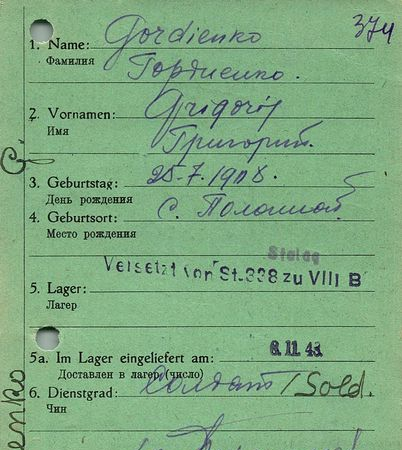 374
1. Name: Gordienko
Фамилия Гордиенко.
2. Vornamen: Grigorij
Имя Григорий.
3. Geburtstag: 25.7.1908.
День рождения
4. Geburtsort: с.
Место рождения
Stalag
Versetzt von St. 338 zu VIII B
5. Lager:
Лагер
5a. Im Lager eingeliefert am: 6.11.43
Доставлен в лагер (число)
6. Dienstgrad: Soldat / Sold.
Чин
enko